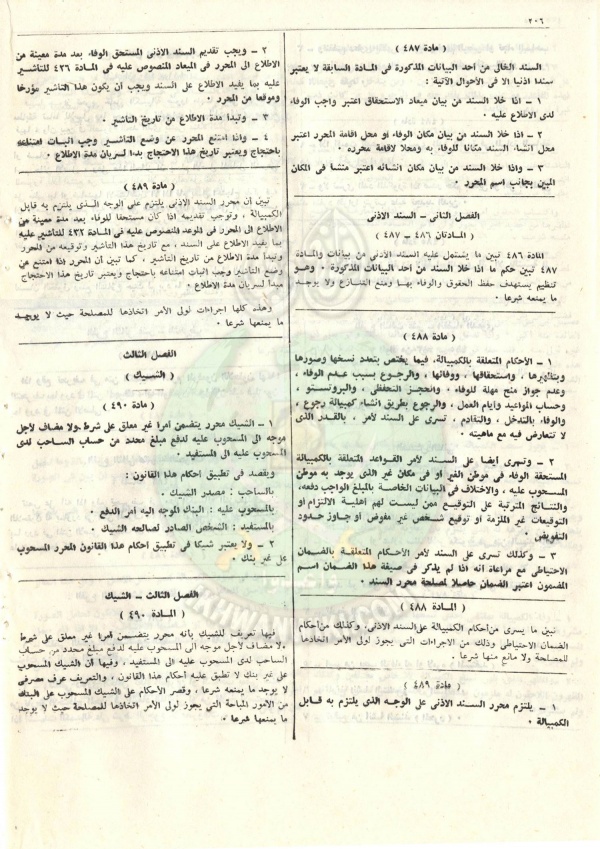 ٢٠٦
( مادة ٤٨٧ )
السند الخالى من أحد البيانات المذكورة فى المادة السابقة لا يعتبر
سندا اذنيا الا فى الأحوال الآتية :
١ – اذا خلا السند من بيان ميعاد الاستحقاق اعتبر واجب الوفاء
لدى الاطلاع عليه .
٢ – اذا خلا السند من بيان مكان الوفاء أو محل اقامة المحرر اعتبر
محل انشاء السند مكانا للوفاء به ومحلا لاقامة محرره .
٣ – واذا خلا السند من بيان مكان انشائه اعتبر منشأ فى المكان
المبين بجانب اسم المحرر .
الفصل الثانى – السند الاذنى
( المادتان ٤٨٦ – ٤٨٧ )
المادة ٤٨٦ تبين ما يشتمل عليه السند الأذنى من بيانات والمادة
٤٨٧ تبين حكم ما اذا خلا السند من أحد البيانات المذكورة . وهو
تنظيم يستهدف حفظ الحقوق والوفاء بها ومنع التنازع ولا يوجد
ما يمنعه شرعا .
( مادة ٤٨٨ )
١ – الأحكام المتعلقة بالكمبيالة، فيما يختص بتعدد نسخها وصورها
وبتظهيرها ، واستحقاقها ، ووفائها ، والرجوع بسبب عدم الوفاء ،
وعدم جواز منح مهلة للوفاء . والحجز التحفظى ، والبروتستو ،
وحساب المواعيد وأيام العمل ، والرجوع بطريق انشاء كمبيالة رجوع ،
والوفاء بالتدخل ، والتقادم ، تسرى على السند لأمر ، بالقدر الذى
لا تتعارض فيه مع ماهيته .
٢ – وتسرى أيضا على السند لأمر القواعد المتعلقة بالكمبيالة
المستحقة الوفاء فى موطن الغير أو فى مكان غير الذى يوجد به موطن
المسحوب عليه ، والاختلاف فى البيانات الخاصة بالمبلغ الواجب دفعه،
والنتائج المترتبة على التوقيع ممن ليست لهم أهلية الالتزام أو
التوقيعات غير الملزمة أو توقيع شخص غير مفوض أو جاوز حدود
التفويض .
٣ – وكذلك تسرى على السند لأمر الأحكام المتعلقة بالضمان
الاحتياطى مع مراعاة انه اذا لم يذكر فى صيغة هذا الضمان اسم
المضمون اعتبر الضمان حاصلا لمصلحة محرر السند .
( المادة ٤٨٨ )
تبين ما يسرى من أحكام الكمبيالة على السند الأذنى، وكذلك من أحكام
الضمان الاحتياطى وذلك من الاجراءات التى يجوز لولى الأمر اتخاذها
للمصلحة ولا مانع منها شرعا .
( مادة ٤٨٩ )
١ – يلتزم محرر السند الأذنى على الوجه الذى يلتزم به قابل
الكمبيالة .
٢ – ويجب تقديم السند الاذنى المستحق الوفاء بعد مدة معينة من
الاطلاع الى المحرر فى الميعاد المنصوص عليه فى المادة ٤٣٦ للتأشير
عليه بما يفيد الاطلاع على السند ويجب أن يكون هذا التأشير مؤرخا
وموقعا من المحرر .
٣ – وتبدأ مدة الاطلاع من تاريخ التأشير .
٤ – واذا امتنع المحرر عن وضع التأشير وجب اثبات امتناعه
باحتجاج ويعتبر تاريخ هذا الاحتجاج بدأ لسريان مدة الاطلاع .
( مادة ٤٨٩ )
تبين أن محرر السند الأذنى يلتزم على الوجه الذى يلتزم به قابل
الكمبيالة ، وتوجب تقديمه اذا كان مستحقا للوفاء بعد مدة معينة من
الاطلاع الى المحرر فى الموعد المنصوص عليه فى المادة ٤٣٢ للتأشير عليه
بما يفيد الاطلاع على السند ، مع تاريخ هذا التأشير وتوقيعه من المحرر
وتبدأ مدة الاطلاع من تاريخ التأشير ، كما تبين أن المحرر اذا امتنع عن
وضع التأشير وجب اثبات امتناعه باحتجاج ويعتبر تاريخ هذا الاحتجاج
بدأ لسريان مدة الاطلاع .
وهذه كلها اجراءات لولى الأمر اتخاذها للمصلحة حيث لا يوجد
ما يمنعها شرعا .
الفصل الثالث
( الشيك )
( مادة ٤٩٠ )
١ – الشيك محرر يتضمن أمرا غير معلق على شرط ولا مضاف لأجل
موجه الى المسحوب عليه لدفع مبلغ محدد من حساب الساحب لدى
المسحوب عليه الى المستفيد .
ويقصد فى تطبيق أحكام هذا القانون :
بالساحب : مصدر الشيك .
بالمسحوب عليه : البنك الموجه اليه أمر الدفع .
بالمستفيد : الشخص الصادر لصالحه الشيك .
٢ – ولا يعتبر شيكا فى تطبيق أحكام هذا القانون المحرر المسحوب
على غير بنك .
الفصل الثالث – الشيك
( المادة ٤٩٠ )
فيها تعريف للشيك بأنه محرر يتضمن أمرا غير معلق على شرط
ولا مضاف لأجل موجه الى المسحوب عليه لدفع مبلغ محدد من حساب
الساحب لدى المسحوب عليه الى المستفيد ، وفيها أن الشيك المسحوب
على غير بنك لا تطبق عليه أحكام هذا القانون ، والتعريف عرف مصرفى
لا يوجد ما يمنعه شرعا ، وقصر الأحكام على الشيك المسحوب على البنك
من الأمور المباحة التى يجوز لولى الأمر اتخاذها للمصلحة حيث لا يوجد
ما يمنعها شرعا .